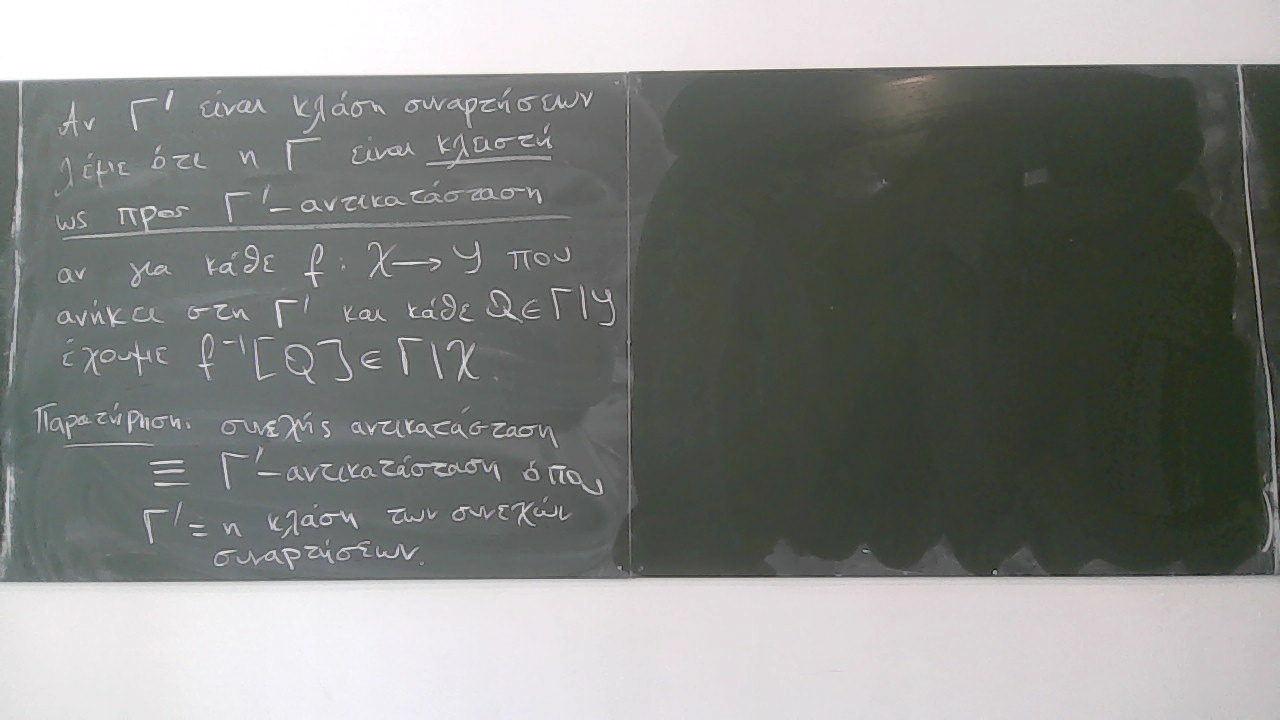 Αν Γ' είναι κλάση συναρτήσεων
λέμε ότι η Γ είναι κλειστή
ως προς Γ'-αντικατάσταση
αν για κάθε f : X → Y που
ανήκει στη Γ' και κάθε Q ∈ Γ|Y
έχουμε f⁻¹[Q] ∈ Γ|X.
Παρατήρηση: συνεχής αντικατάσταση
≡ Γ'-αντικατάσταση όπου
Γ' = η κλάση των συνεχών
συναρτήσεων.